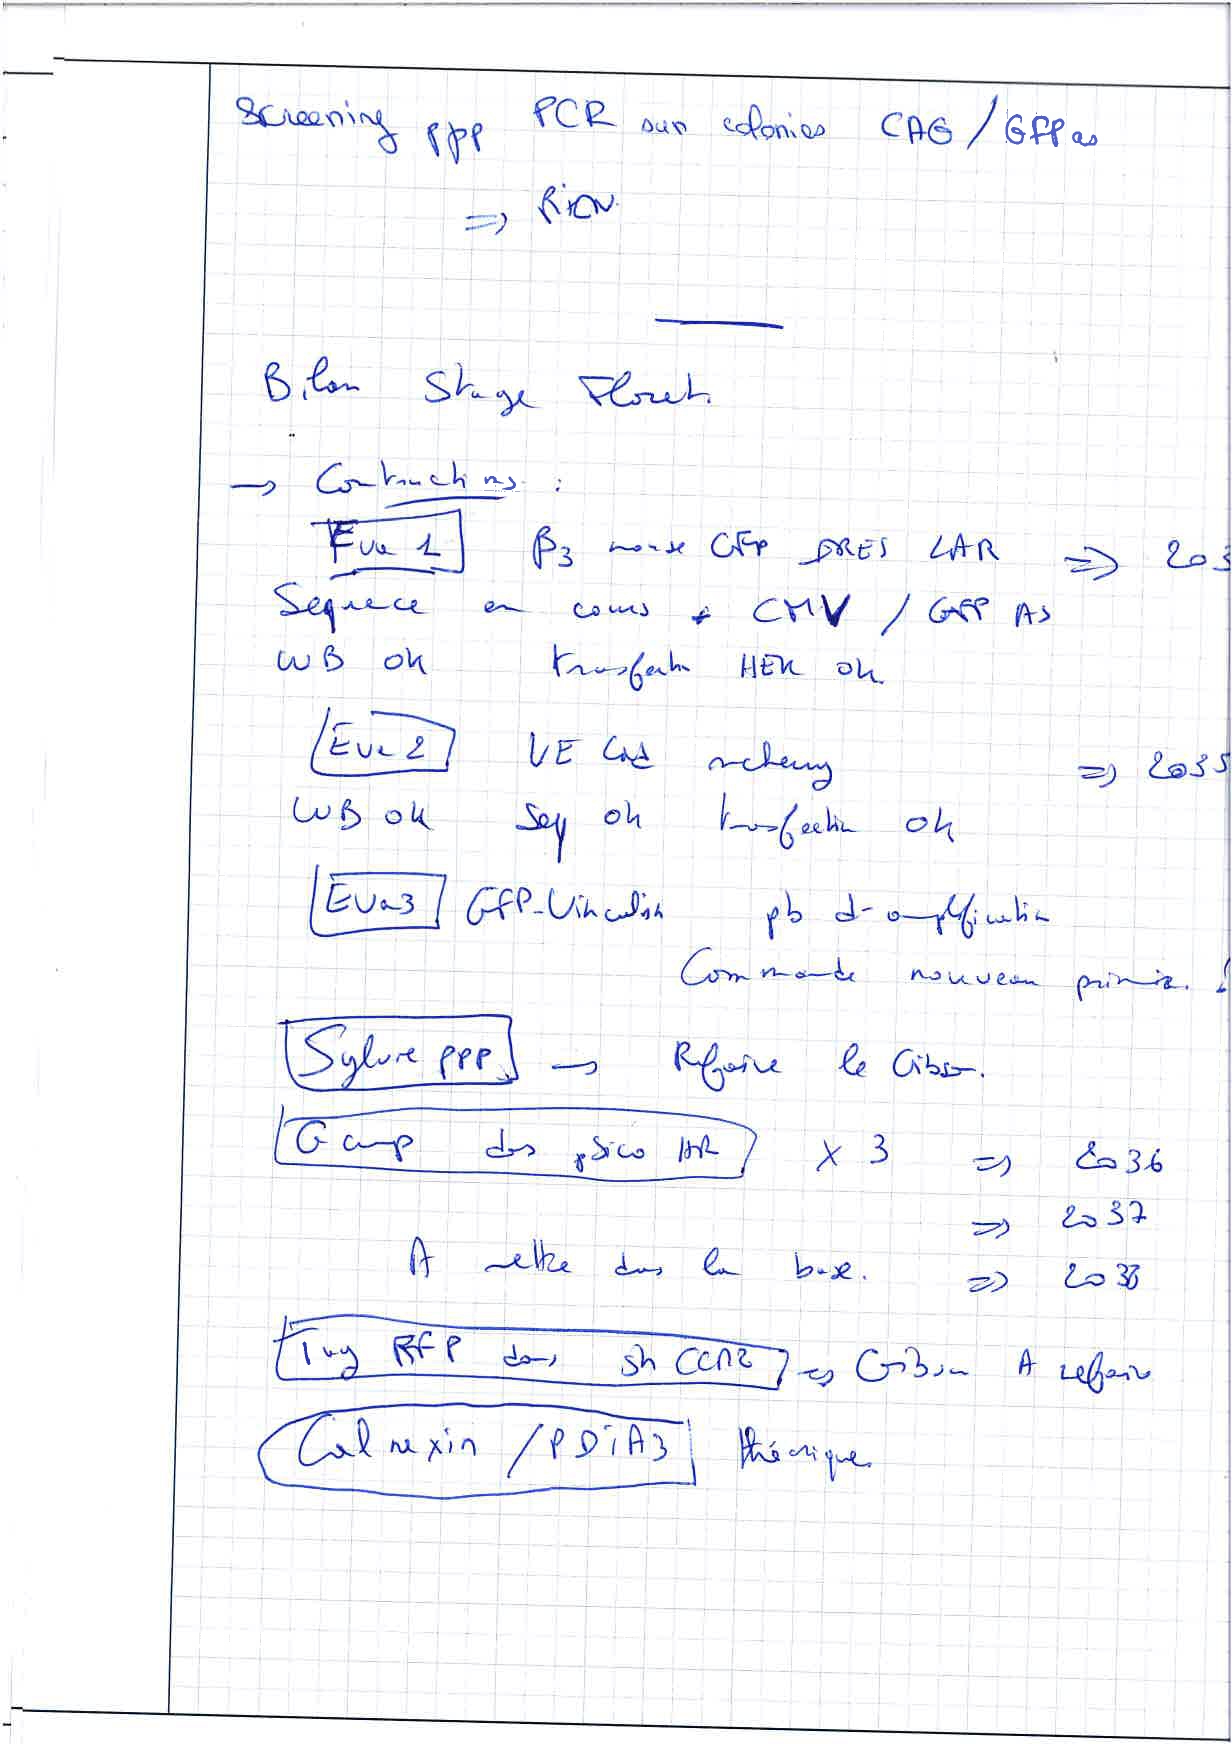 Screening ppp PCR sur colonies CAG / GFP as
⇒ RiEN
Bilan Stage Floret.
→ Contructions :
Eva 1 β3 mouse GFP IRES LAR ⇒ 203
Sequece en cours + CMV / GFP AS
WB ok transfectn HEK ok.
Eva 2 VE Cad mcherry ⇒ 2035
WB ok Seq ok transfection ok
Eva3 GFP-Vinculin pb d'amplification
Commande nouveau primer. !
Sylvie ppp → Refaire le Gibson.
Gcamp dans psico HR x 3 ⇒ 2036
⇒ 2037
A mettre dans la base. ⇒ 2038
Tag RFP dans sh CCM2 ⇒ Gibson A refaire
Calnexin / PDiA3 théorique.